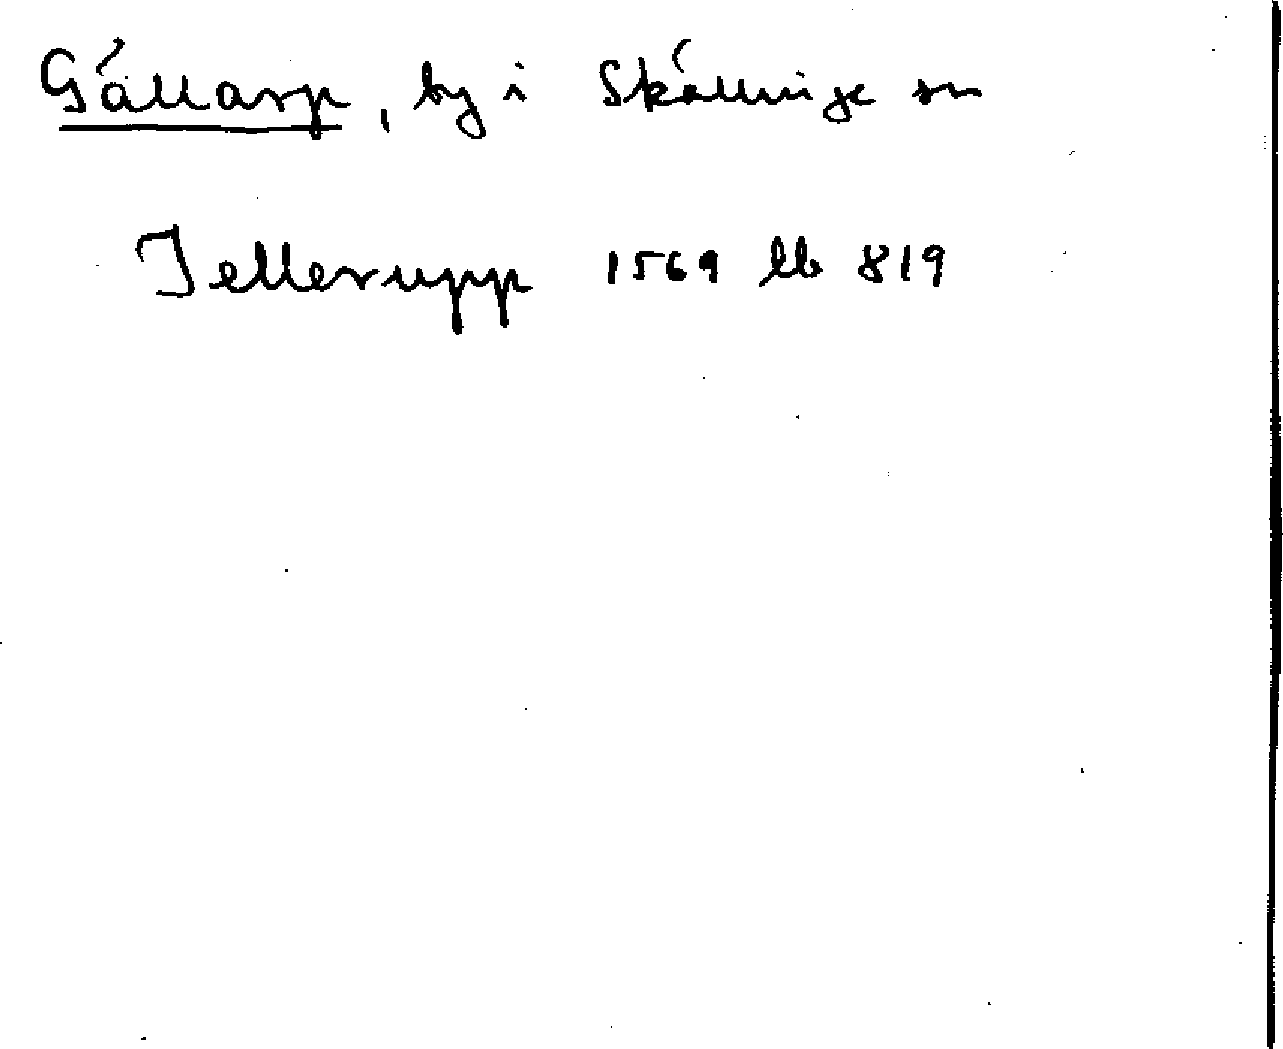 Gällarp, by i Skällinge sn
Jellerupp 1569 lb 819